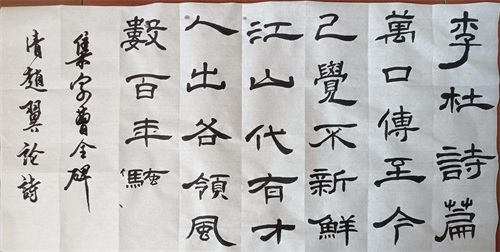 李杜詩篇
萬口傳至今
已覺不新鮮
江山代有才
人出各領風
數百年騷
集字曹全碑
清趙翼論詩